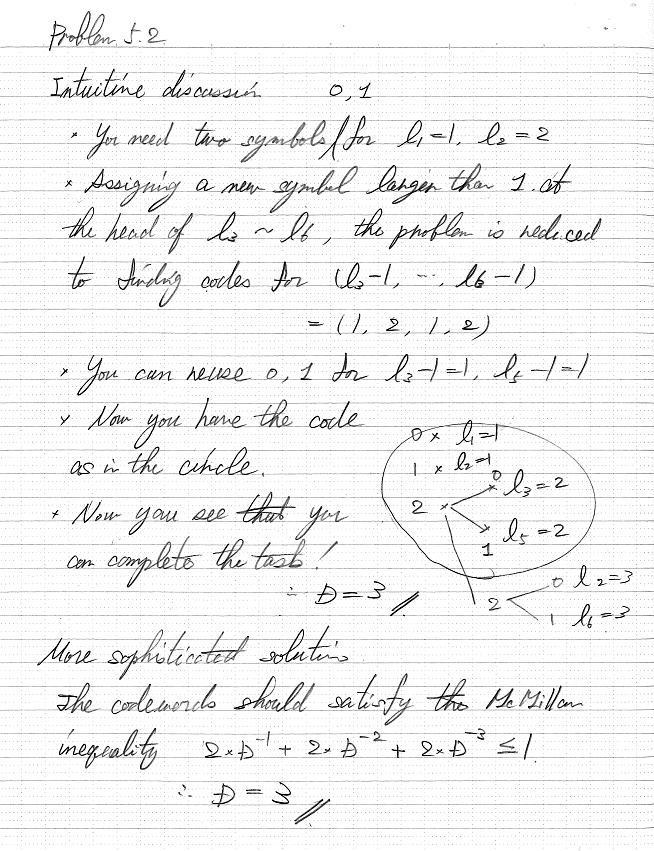 Problem 5.2
Intuitive discussion 0, 1
* You need two symbols for l₁=1, l₂=2
* Assigning a new symbol larger than 1. at
the head of l₃ ~ l₆, the problem is reduced
to finding codes for (l₃-1, ..., l₆-1)
= (1, 2, 1, 2)
* You can reuse 0, 1 for l₃-1=1, l₅-1=1
* Now you have the code
as in the circle.
* Now you see that you
can complete the task!
∴ D=3
0 × l₁=1
1 × l₂=1
2 ×
0 l₃=2
1 l₅=2
2
0 l₂=3
1 l₆=3
More sophisticated solution
The codewords should satisfy the McMillan
inequality 2×D⁻¹ + 2×D⁻² + 2×D⁻³ ≤ 1
∴ D=3